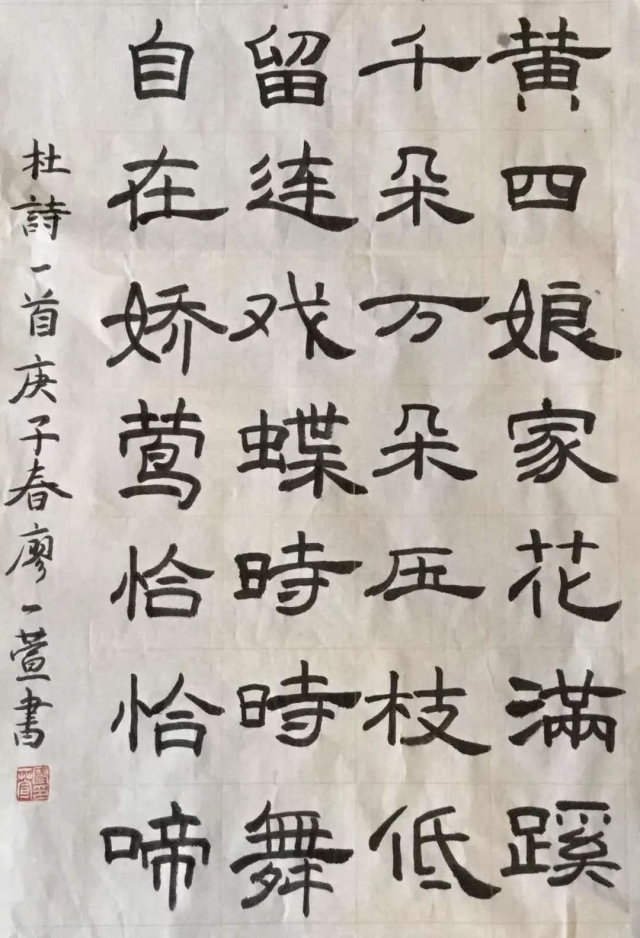 黄四娘家花滿蹊
千朵万朵压枝低
留连戏蝶時時舞
自在娇莺恰恰啼
杜詩一首庚子春廖一萱書